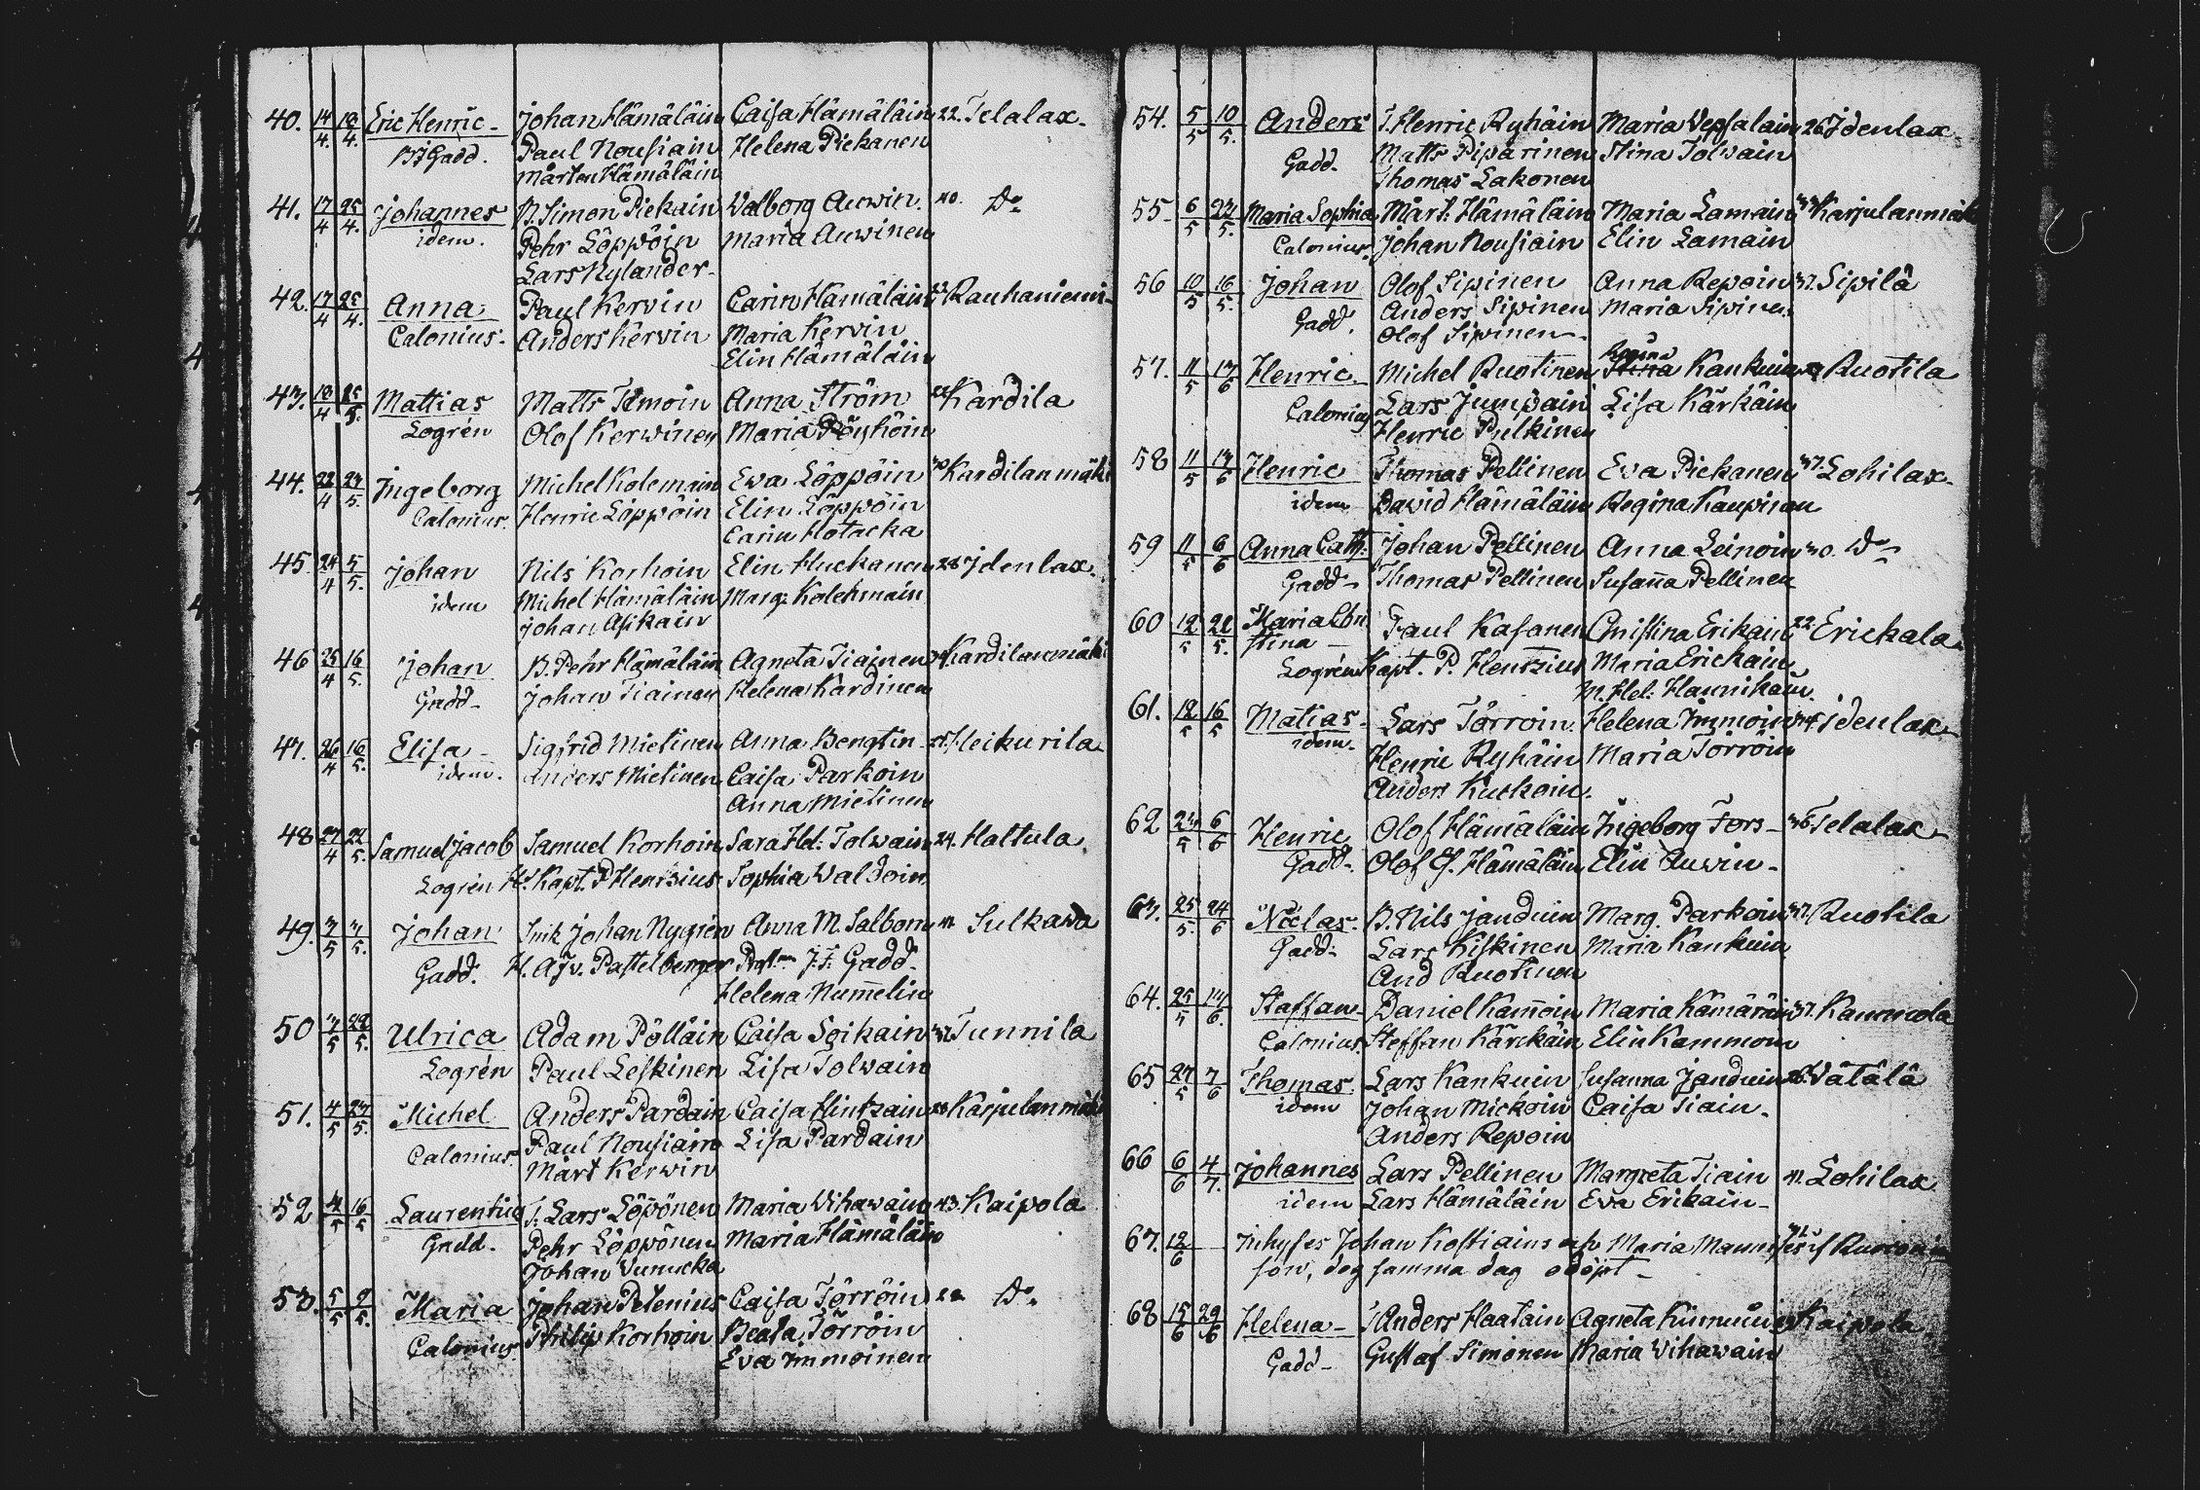 40. 14/4. 18/4. Eric Henric - Johan Hämäläin Caisa Hämäläin 22. Telalax.
Gadd. Paul Nousiain Helena Piekanen
Mårten Hämäläin
41. 17/4 25/4. Johannes B. Simon Piekain Walborg Auwin. 40. Do
idem. Pehr Löppöin Maria Auwinen
Lars Nylander.
42. 17/4 25/4. Anna Paul Kervin Carin Hämäläin Rauhaniemi
Calonius. Anders Kervin Maria Kervin
Elin Hämäläin
43. 18/4 25/5. Mattias Matts Temoin Anna Ström Kardila
Logrén Olof Kerwinen Maria Pöyhöin
44. 22/4 27/5. Ingeborg Michel Kolemain Ewa Löppöin Kardilanmäki
Calonius. Henric Löppöin Elin Löppöin
Carin Hotacka
45. 24/4 5/5. Johan Nils Korhoin Elin Huckanen 28. Idenlax.
idem Michel Hämäläin Marg: Kolehmain
Johan Asikain
46 25/4 16/5. Johan B. Pehr Hämäläin Agneta Tiainen Kardilanmäki
Gadd - Johan Tiainen Helena Kardinen
47. 26/4 16/5. Elisa - Sigfrid Mietinen Anna Bengtin Heikurila
idem. Anders Mietinen Caisa Parkoin
Anna Mietinen
48 27/4 22/5. Samuel Jacob Samuel Korhoin Sara Hel: Tolwain 24. Haltula
Logrén H. Kapt. P Hentzius Sophia Waldoin
49. 3/5 7/5. Johan Johan Nygrén Anna M. Salbom Sulkawa
Gadd. H. Pastelberger J. F. Gadd.
Helena Nummelin
50 3/5 22/5. Ulrica Adam Pölläin Caisa Soikain Tunnila
Logrén Paul Leskinen Lisa Tolwain
51. 4/5 27/5. Michel Anders Pardain Caisa Hintzain Karjulanmäki
Calonius. Paul Nousiain Lisa Pardain
Mårt Kerwin
52 4/5 16/5 Laurentius T. Lars Löpönen Maria Wihawain 43. Kaipola
Gadd. Pehr Löppönen Maria Hämäläin
Johan Wunucka
53. 5/5 9/5. Maria Johan Petenius Caisa Törröin 22 Do.
Calonius. Philip Korhoin Beata Törröin
Eva Immoinen
54. 5/5 10/5. Anders T. Henric Ryhäin Maria Vepsalain 26 Idenlax.
Gadd. Matts Piparinen Stina Tolwain
Thomas Lakonen
55. 6/5 27/5. Maria Sophia Mårt: Hämäläin Maria Lamain Karjulanmäki
Calonius. Johan Nousiain Elin Lamain
56 10/5 16/5. Johan Olof Sipinen Anna Repoin 37. Sipilä
Gadd. Anders Sipinen Maria Sipinen
Olof Sipinen
Regina
57. 11/5 17/6 Henric. Michel Ruotinen Stina Kankuin Ruotila
Calonius Lars Jumpain Lisa Kärkäin
Henric Pulkinen
58 11/5 17/6 Henric Thomas Pellinen Eva Piekanen 37. Lohilax.
idem David Hämäläin Regina Kaupinen
59 11/5 6/6 Anna Cath: Johan Pellinen Anna Leinoin 30. Do
Gadd - Thomas Pellinen Susanna Pellinen
60 12/5 28/5. Maria Chri
stina - Paul Kasanen Christina Erikain 22. Erickala.
Logrén Kapt. P. Hentzius Maria Erickain
M. Hel: Hannikain
61. 12/5 16/5 Matias - Lars Törroin. Helena Immoin Idenlax
idem. Henric Ryhäin Maria Törröin
Anders Kuckoin.
62 23/5 6/6 Henric Olof Hämäläin Ingeborg Fors - 36 Telalax
Gadd. Olof Hämäläin Elin Auwin -
63. 25/5. 24/6 Niclas. B. Nils Janduin Marg. Parkoin 37. Ruotila
Gadd. Lars Kiskinen Maria Kankuin
And Ruotinen
64. 25/5 17/6. Staffan - Daniel Kamoin Maria Kämäräin 37. Kammola
Calonius. Steffan Kärckäin Elin Kammoin
65 27/5 7/6 Thomas Lars Kankuin Susanna Janduin Wätälä
idem Johan Mickoin Caisa Tiain -
Anders Repoin
66 6/6 4/7. Johannes Lars Pellinen Margreta Tiain 41. Lohilax
idem Lars Hämäläin Eva Erikain -
67. 12/6 Inhyses Johan Kostiains och Maria
son, dog samma dag odöpt -
68 15/6 29/6 Helena - Anders Haatain Agneta Kaipola.
Gadd - Gustaf Simonen Maria Wihawain